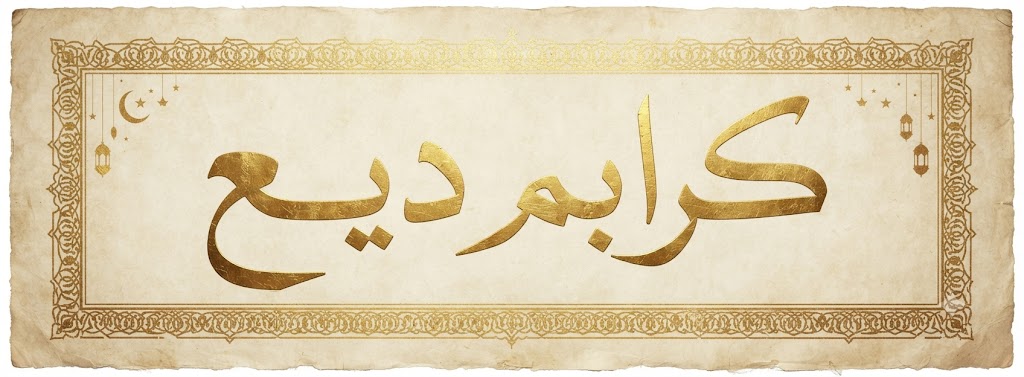 كرابم ديع